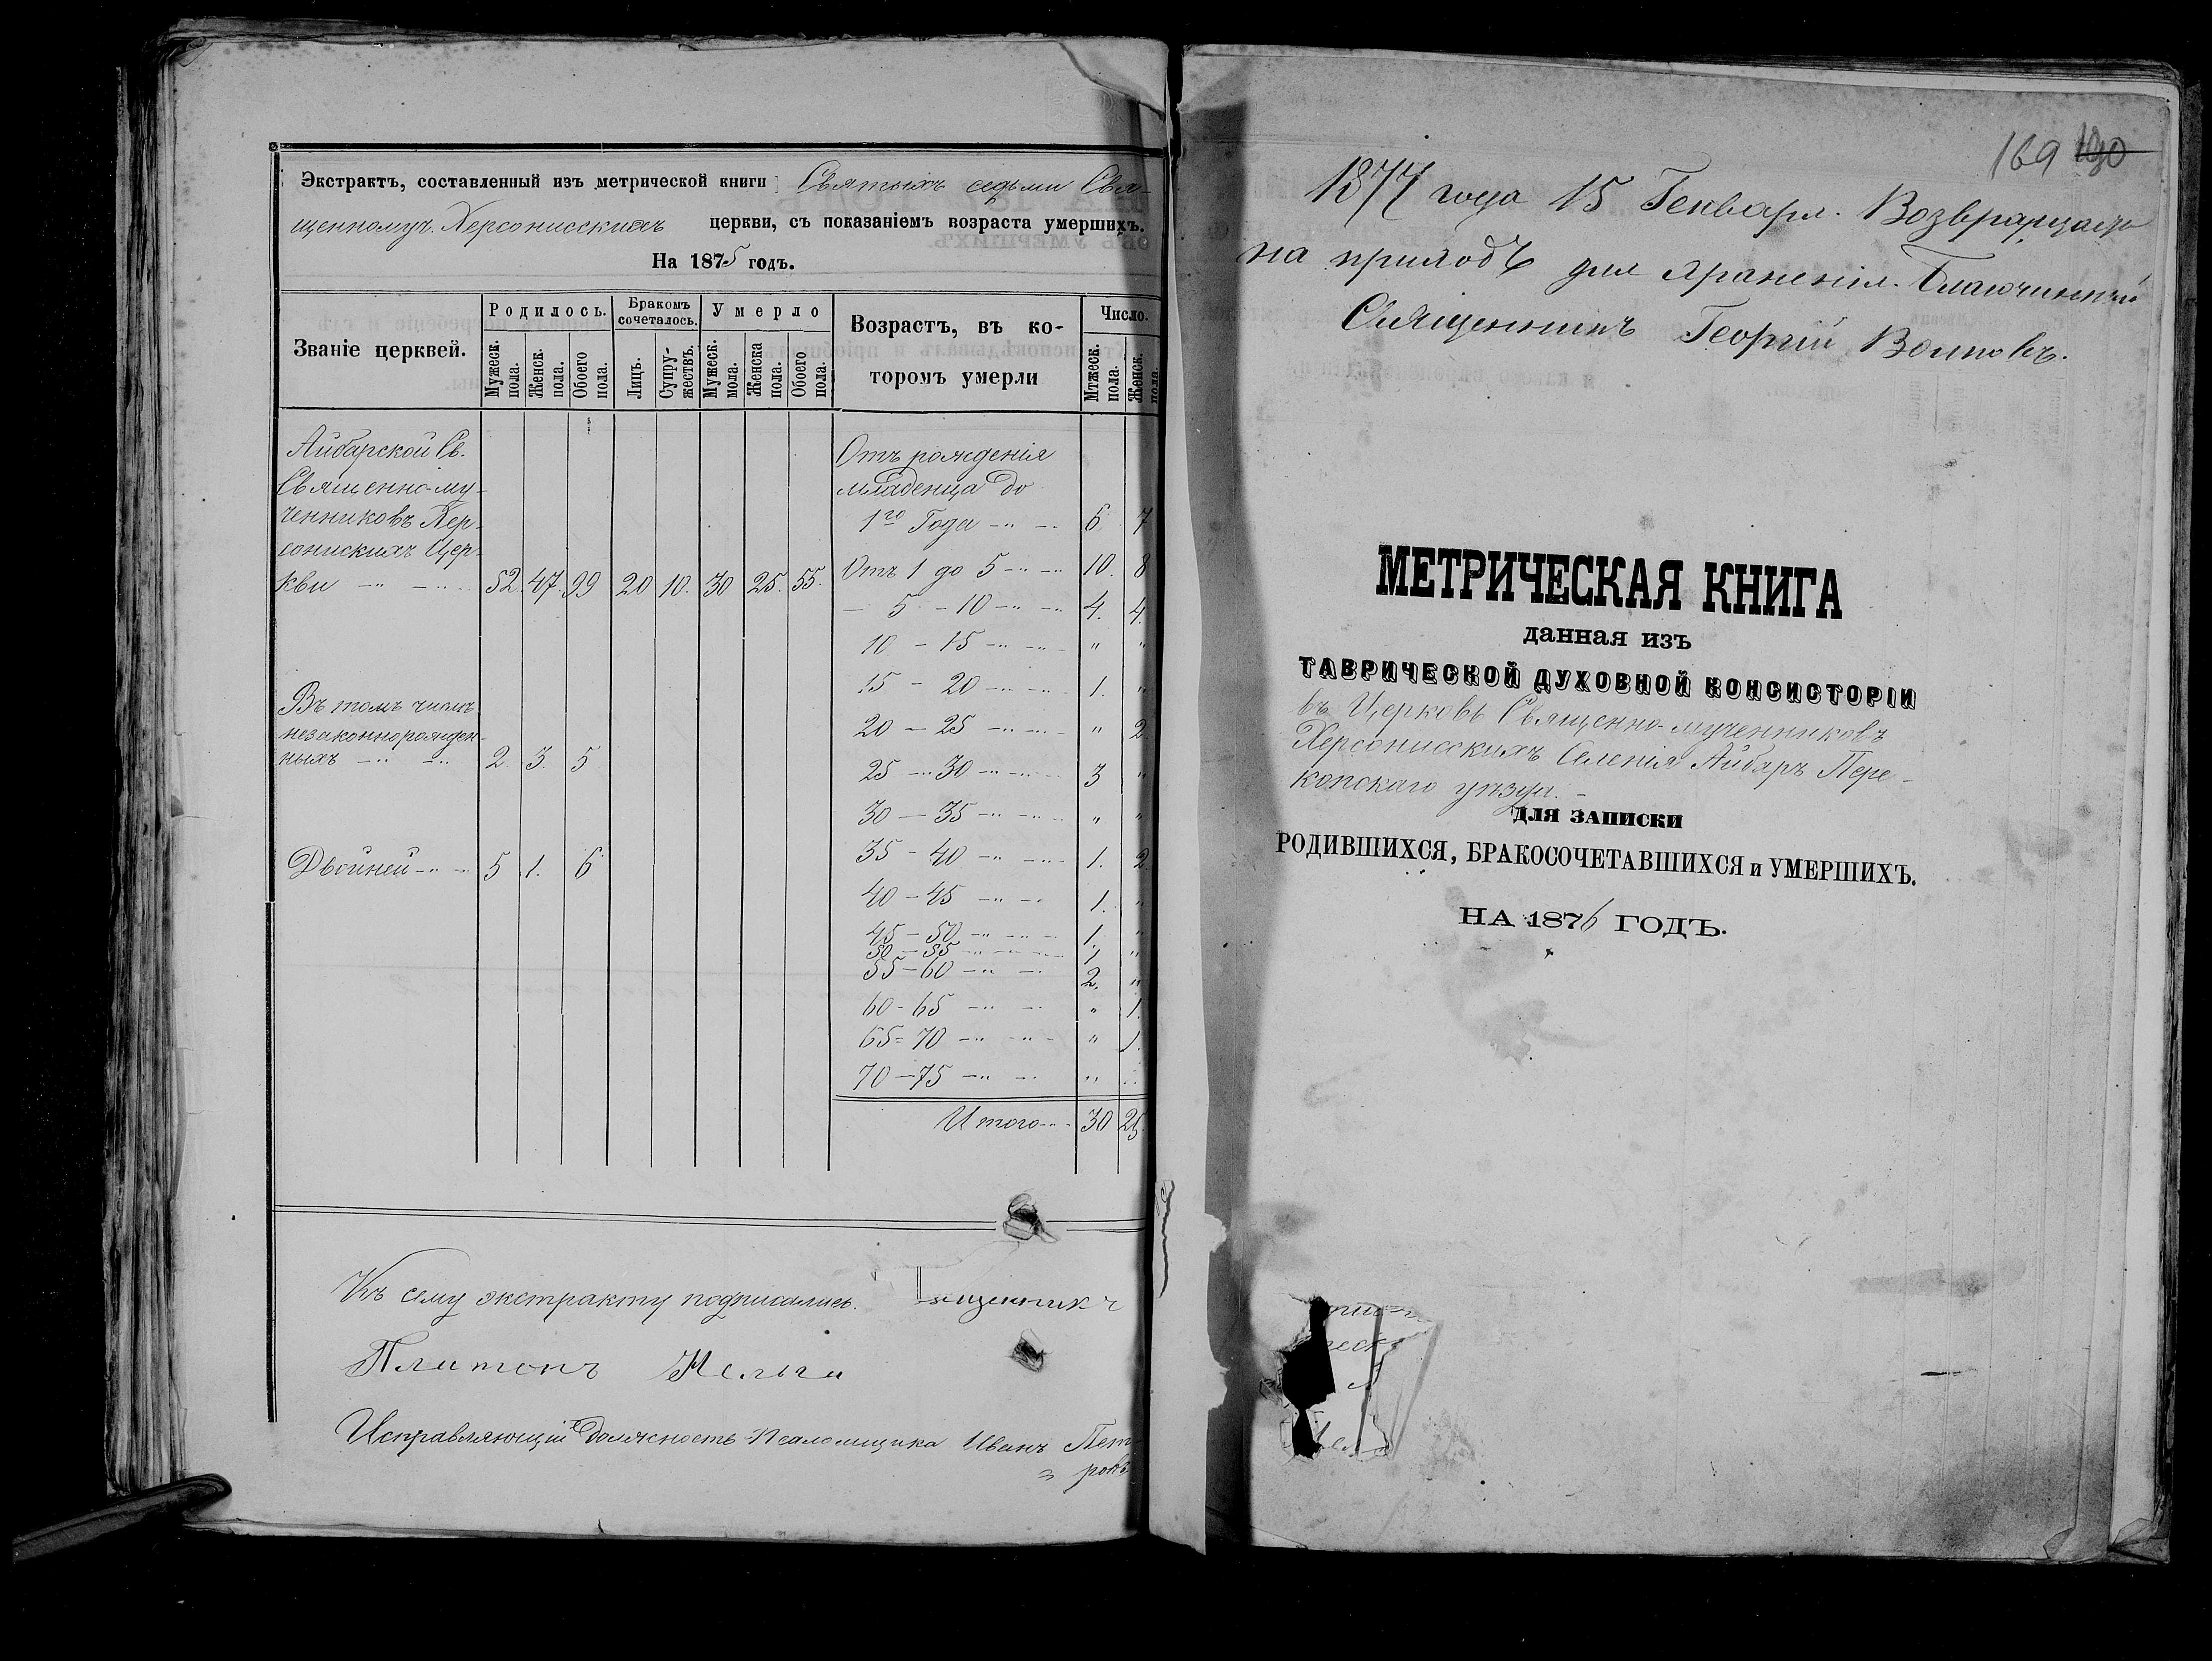 Экстрактъ, составленный изъ метрической книги Святыхъ седьми Свя-
щенномуч. Херсонисскихъ церкви, съ показаніемъ возраста умершихъ.
На 1875 годъ.
Званіе церквей.
Родилось.
Мужеск. пола.
Женск. пола.
Обоего пола.
Бракомъ сочеталось.
Лицъ.
Супру-жествъ.
Умерло
Мужеск. мола.
Женска пола.
Обоего пола.
Возрастъ, въ ко-
торомъ умерли
Число.
Мтжеск. пола.
Женск. пола.
Айбарской Св.
Священно-му-
ченниковъ Хер-
сонискихъ Цер-
кви 52. 47. 99 20 10. 30 25. 55.
Въ томъ числѣ
незаконнорожден-
ныхъ 2. 3. 5
Двойней 5 1. 6
Отъ рожденія
младенца до
1го Года 6 7
Отъ 1 до 5 10. 8
— 5 - 10 4. 4.
10 - 15 " "
15 - 20 1. "
20 - 25 " 2
25 - 30 3 "
30 - 35 " "
35 - 40 1. 2
40 - 45 1. "
45 - 50 1. "
50 - 55 1, "
55 - 60 2. "
60 - 65 " 1.
65 = 70 " 1.
70 - 75 " "
Итого 30 25
Къ сему экстракту подписались. щенникъ
Платонъ
Исправляющій должность Псаломщика Иванъ Пет-
ровъ
169 190
1877 года 15 Генваря. Возвращаю
на приходъ для храненія. Благочинный
Священникъ Георгій Волковъ.
МЕТРИЧЕСКАЯ КНИГА
данная изъ
ТАВРИЧЕСКОЙ ДУХОВНОЙ КОНСИСТОРІИ
въ Церковь Священно-мученниковъ
Херсонисскихъ Селенія Айбаръ Пере-
копскаго уѣзда.
ДЛЯ ЗАПИСКИ
РОДИВШИХСЯ, БРАКОСОЧЕТАВШИХСЯ и УМЕРШИХЪ.
НА 1876 ГОДЪ.